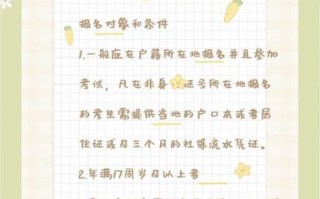 报名对象和条件
1.一般应在户籍所在地报名并且参加
考试，凡在非身份证号所在地报名
的考生需提供当地的户口本或者居
住证或及三个月的社保流水凭证。
2.年满17周岁及以上者